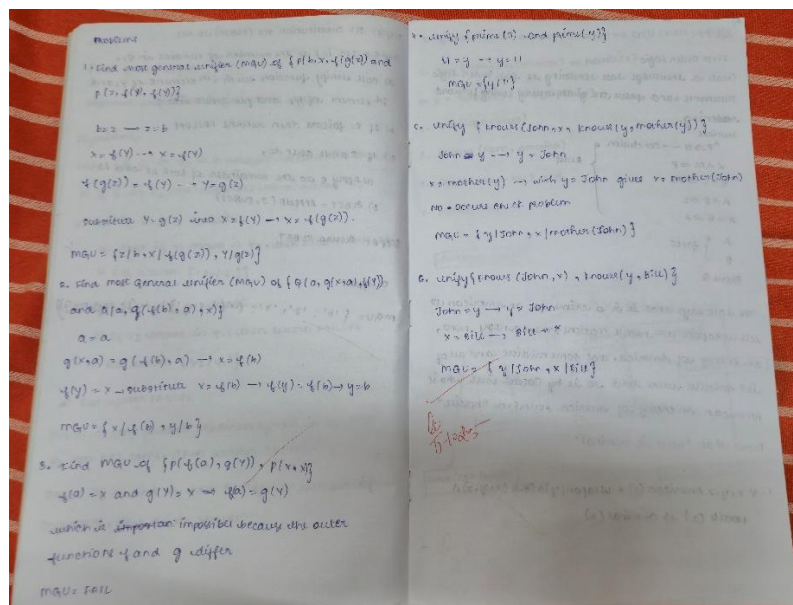 Problems
1. Find most general unifier (MGU) of {P(b,x,f(g(z))) and
P(z,f(Y),f(Y))}
b=z → z=b
x=f(Y) → x=f(Y)
f(g(z))=f(Y) → Y=g(z)
substitute Y=g(z) into x=f(Y) → x=f(g(z)).
MGU={z/b,x/f(g(z)),Y/g(z)}
2. Find most General Unifier (MGU) of {Q(a,g(x,a),f(Y))
and Q(a,g(f(b),a),x)}
a=a
g(x,a)=g(f(b),a) → x=f(b)
f(y)=x → substitute x=f(b) → f(y)=f(b) → y=b
MGU={x/f(b),y/b}
3. Find MGU of {P(f(a),g(Y)), P(x,x)}
f(a)=x and g(Y)=x → f(a)=g(Y)
which is impossibel because the outer
functions f and g differ
MGU=FAIL
unify {prime(11) and prime(y)}
11=y → y=11
MGU={y/11}
unify {knows(John,x), knows(y,mother(y))}
John=y → y=John
x=mother(y) → with y=John gives x=mother(John)
No occurs check problem
MGU={y/John,x/mother(John)}
6. unify{knows(John,x), knows(y,Bill)}
John=y → y=John
x=Bill → Bill=x
MGU={y/John,x/Bill}